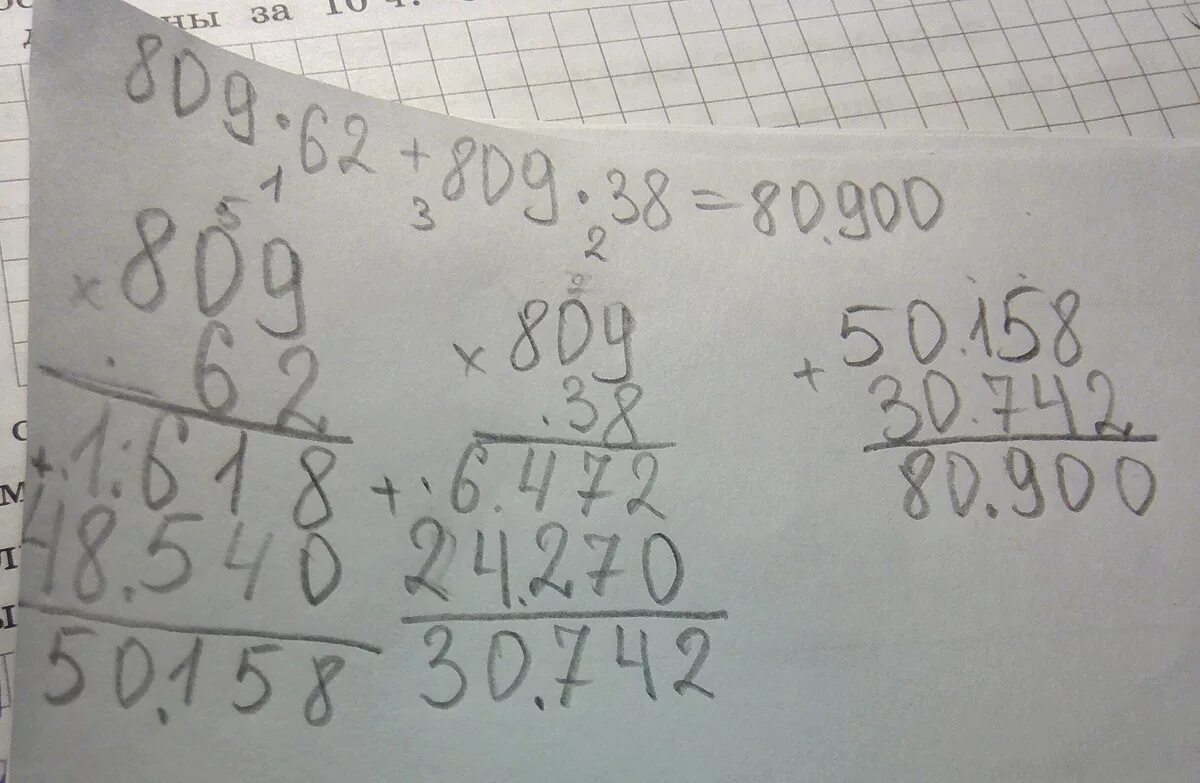 ны за 10 ч.
809·62+809·38=80.900
5 1
× 809
62
+ 1.618
48.540
50.158
3 2
× 809
38
+ 6.472
24.270
30.742
50.158
+ 30.742
80.900